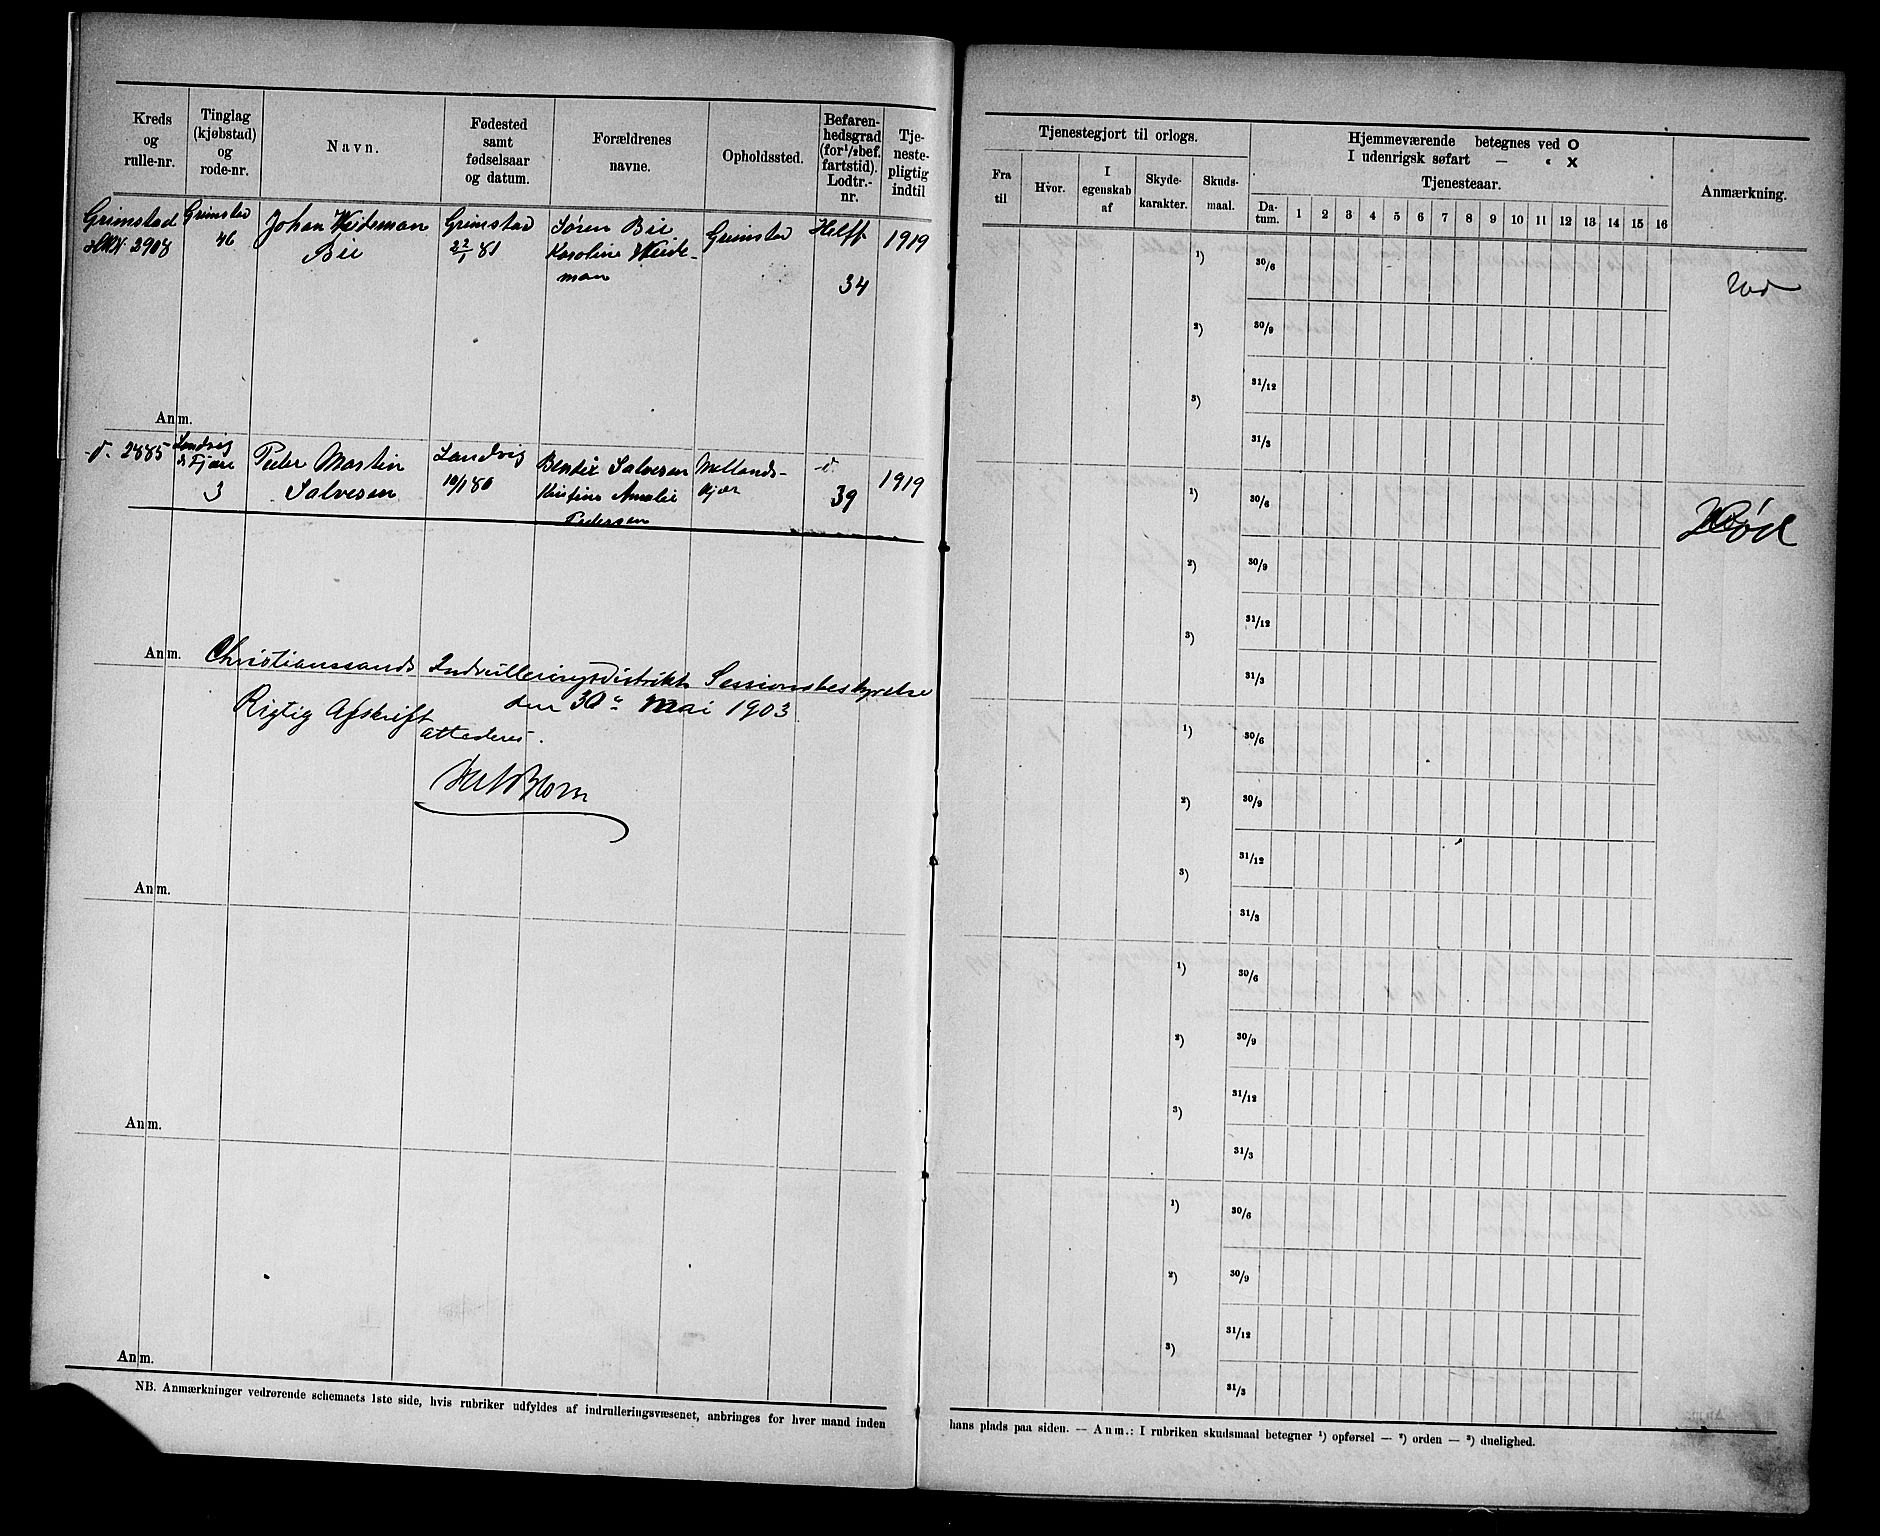 Kreds
og
rulle-nr.
Tinglag
(kjøbstad)
og
rode-nr.
Navn.
Fødested
samt
fødselsaar
og datum.
Forældrenes
navne.
Opholdssted.
Befaren-
hedsgrad
(for 1/2 bef.
fartstid).
Lodtr.-
nr.
Tje-
neste-
pligtig
indtil
Grimstad
2908
Grimstad
46
Johan Weideman
Bie
Grimstad
22/1 81
Søren Bie
Karoline Weide-
man
Grimstad
Helft
34
1919
Anm.
d. 2885
Landvig
& Fjære
3
Peder Martin
Salvesen
Landvig
10/1 80
Bendix Salvesen
Kristine Amalie
Pedersen
d.
39
1919
Anm.
Christianssands Indrulleringsdistrikts Sessionsbestyrelse
den 30te Mai 1903
Rigtig Afskrift
attesteres.
Anm.
Anm.
Anm.
NB. Anmærkninger vedrørende schemaets 1ste side, hvis rubriker udfyldes af indrulleringsvæsenet, anbringes for hver mand inden
Tjenestegjort til orlogs.
Fra
til
Hvor.
I
egenskab
af
Skyde-
karakter.
Skuds-
maal.
Hjemmeværende betegnes ved O
I udenrigsk søfart — " X
Tjenesteaar.
Da-
tum.
1 2 3 4 5 6 7 8 9 10 11 12 13 14 15 16
Anmærkning.
1) 30/6
2) 30/9
31/12
3)
31/3
1) 30/6
Død
2) 30/9
31/12
3)
31/3
1) 30/6
2) 30/9
31/12
3)
31/3
1) 30/6
2) 30/9
31/12
3)
31/3
1) 30/6
2) 30/9
31/12
3)
31/3
hans plads paa siden. — Anm.: I rubriken skudsmaal betegner 1) opførsel — 2) orden — 3) duelighed.